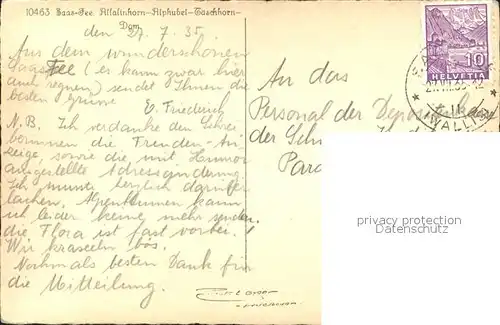 10463 Saas-Fee. Allalinhorn-Alphubel-Taeschhorn-
Dom
den 27. 7. 35.
Aus dem wunderschönen
Saas Fee (es kann zwar hier
auch regnen) sendet Ihnen die
besten Grüsse
E. Friederich
N.B. Ich verdanke den
die
zeige, sowie die mit Humor
ausgestellte Adressänderung.
Ich musst herzlich darüber
lachen. Alpenblumen kann
ich leider keine mehr senden
die Flora ist fast vorbei.
Wir kraxeln bös.
Nochmals besten Dank für
die Mitteilung.
An das
Personal der Depositen
der
Para
10
HELVETIA
27.VII.35
(WALLIS)
privacy protection
Datenschutz